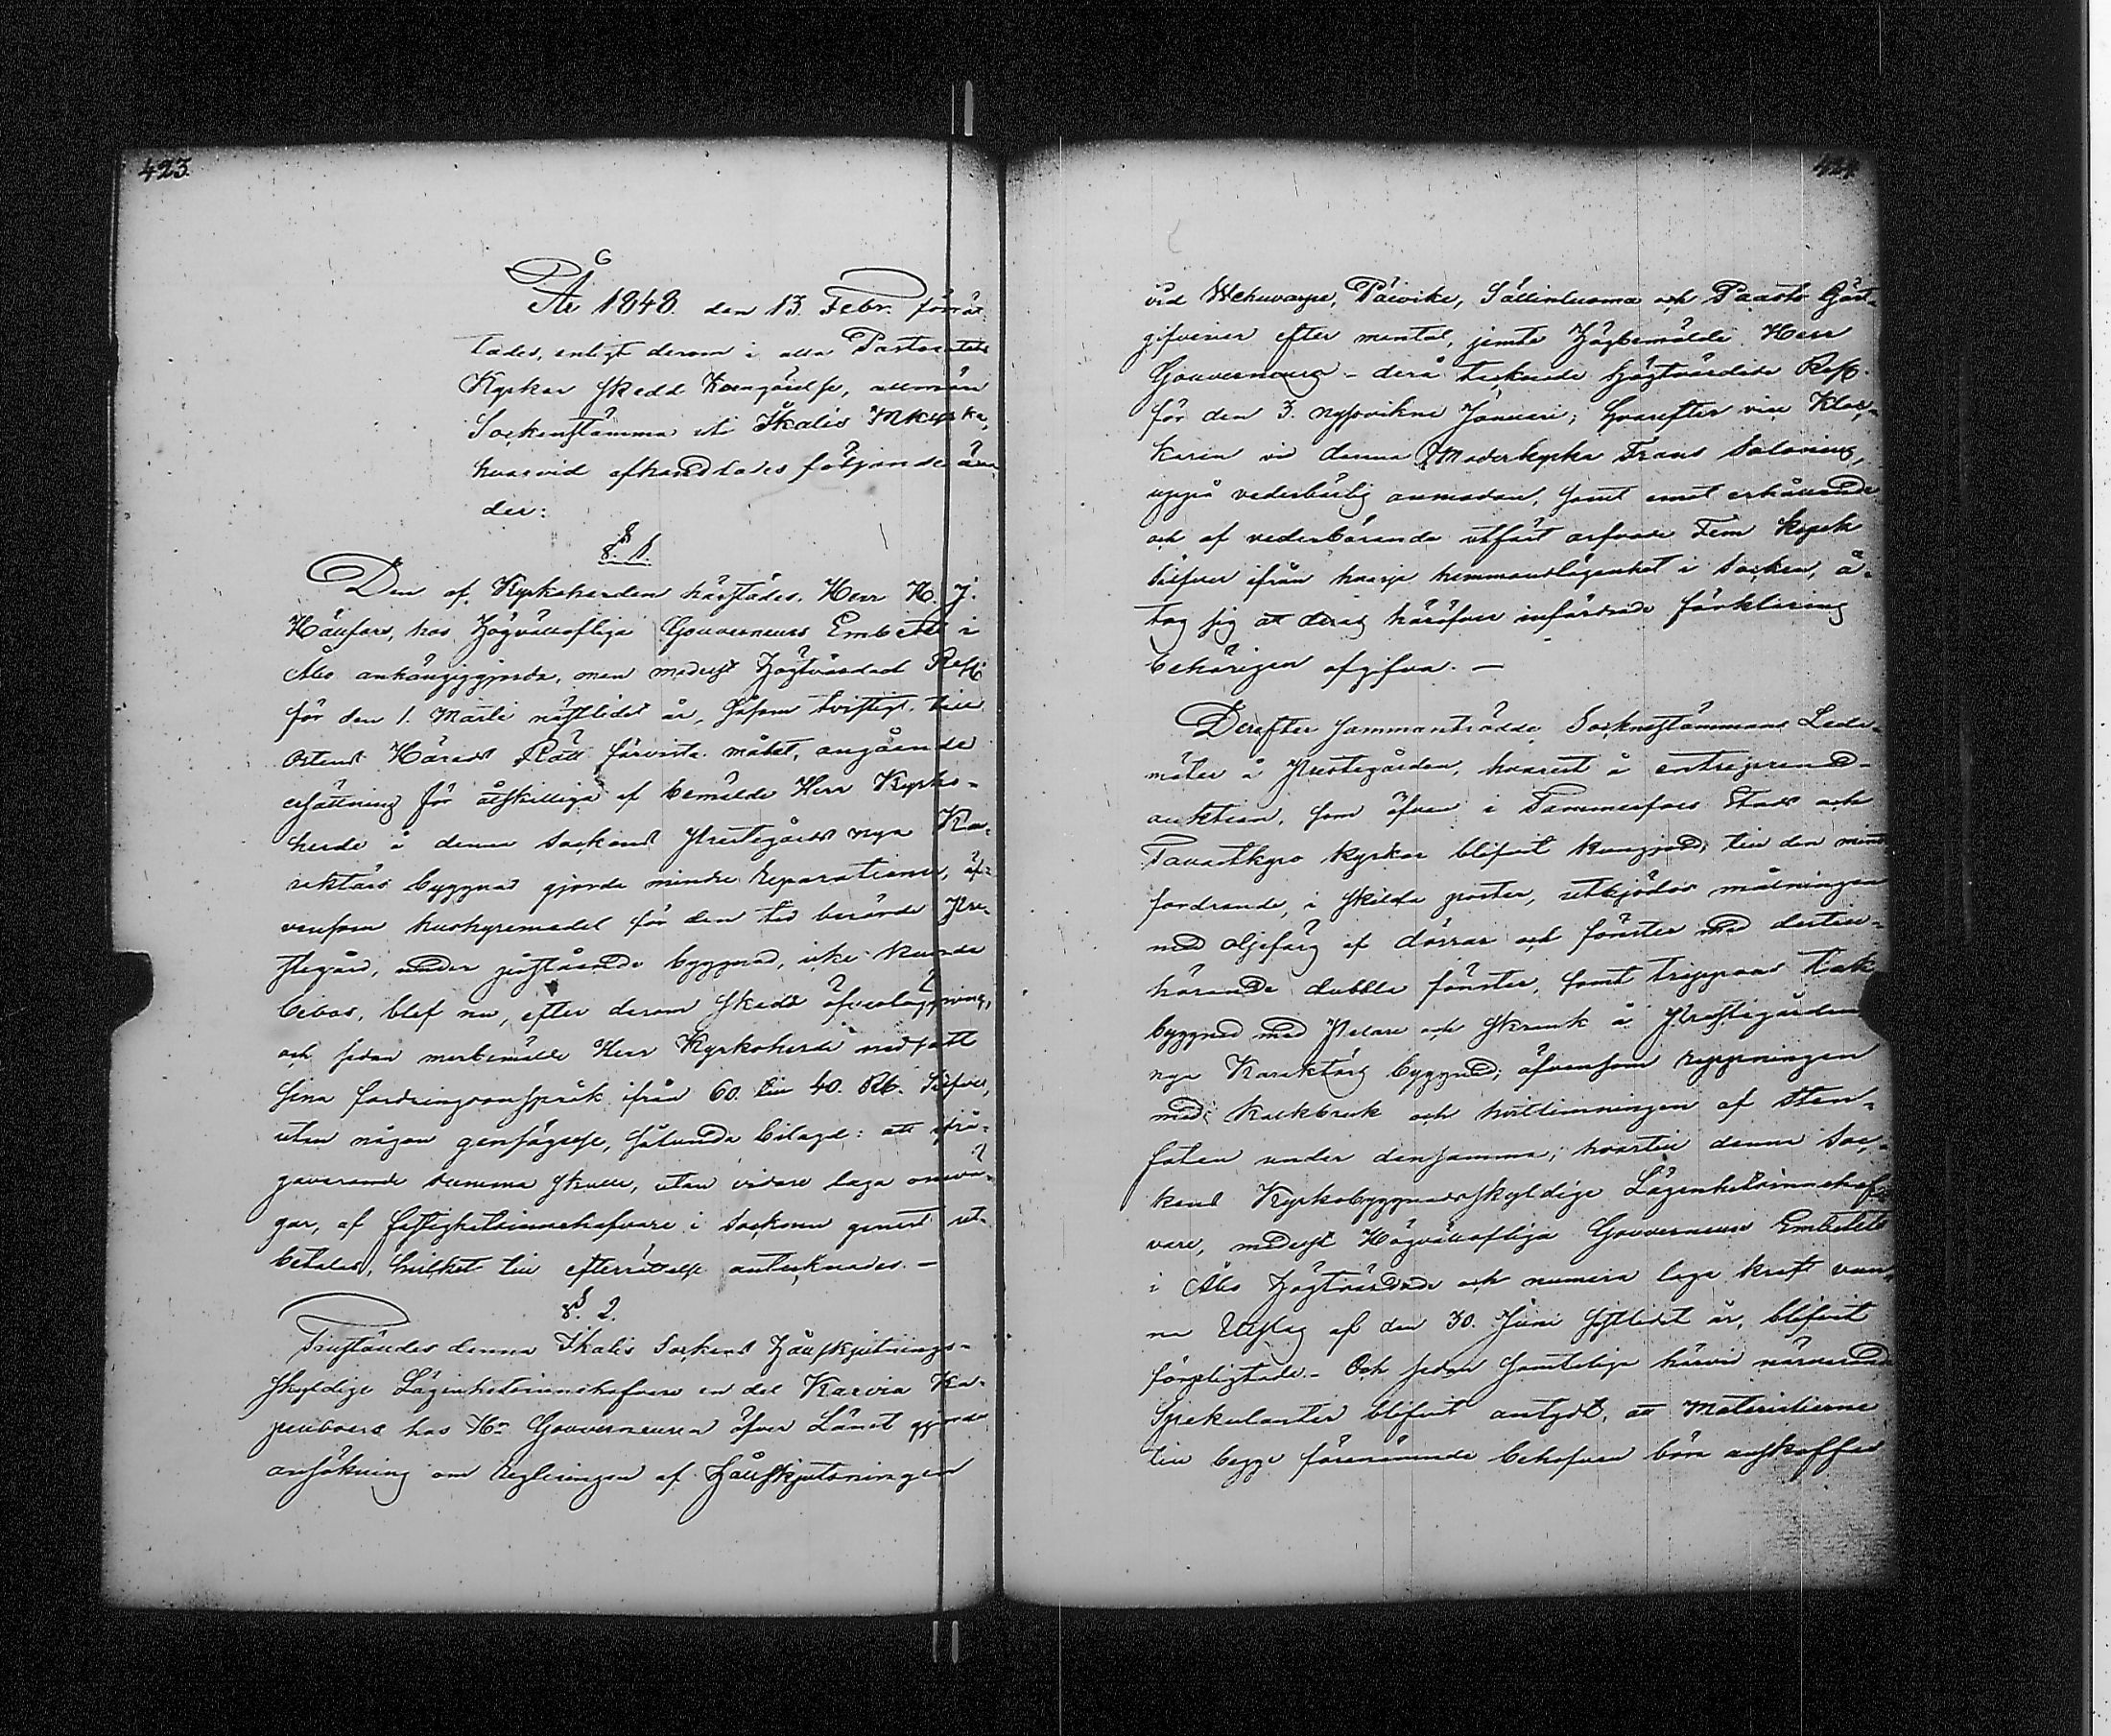 423.
År 1848. den 13. Febr. förrät-
tades, enligt derom i alla Pastoratets
Kyrkor skedd kungörelse, allmän
Sockenstämma uti Ikalis Mkyrka,
hvarvid afhandlades följande ären-
der:
§. 1.
Den af Kyrkoherden härstädes, Herr H. J.
Hällfors, hos Högvällofliga Gouverneurs Embetet i
Åbo anhängiggjorda, men medelst Högtvördad Resol.
för den 1. Martii nästlidet år, såsom tvistigt, till
Ortens Härads Rätt förvista målet, angående
ersättning för åtskilliga af bemälde Herr Kyrko-
herde å denna Sockens Prestegårds nya Ka-
raktärs byggnad gjorda mindre reparationer, äf-
vensom hushyremedel för den tid berörde Pre-
stegård, under påstående byggnad, icke kunde
bebos, blef nu, efter derom skedd öfverläggning,
och sedan merbemälde Herr Kyrkoherde nedsatt
sina fordringsanspråk ifrån 60. till 40. Rb. Silfver,
utan någon gensägelse, sålunda bilagd: att
gavarande summa skulle, utan vidare laga omvä-
gar, af fastighetsinnehafvare i Socknen genast ut-
betalas, hvilket till efterrättelse antecknades. —
§. 2.
Tillställdes denna Ikalis Sockens Hållskjutnings-
skyldige Lägenhetsinnehafvare en del Karvia Ka-
pellboers hos Hr Gouverneuren öfver Länet gjorda
ansökning om regleringen af Hållskjutsningen
424
vid Wehuvarpe, Päivike, Sällinluoma och Paasto Gäst-
gifverier efter mantal, jemte Högbemälde Herr
Gouverneurs – derå tecknade Högtvördade Resol.
för den 3. nyssvikne Januari; Hvarefter vice Kloc-
karen vid denna Moderkyrka Frans Salonius,
uppå vederbörlig anmodan, samt emot erhållande
och af vederbörande utfäst arfvode Fem kopek
Silfver ifrån hvarje hemmanslägenhet i Socken, å-
tog sig at deras häröfver infordrade förklaring
behörigen afgifva. —
Derefter sammanträdde Socknestämmans Leda-
möter å Prestegården, hvarest å entreprenad-
auktion, som äfven i Tammerfors Stad och
Tavastkyro kyrkor blifvit kungjord, till den minst
fordrande, i skilda poster, utbjödos målningen
med oljefärg af dörrar och fönster med dertill-
hörande dubbla fönster, samt trappans tak
byggnad med Pelare och skrank å Prestegården
nya Karaktärs byggnad; äfvensom rappningen
med kalkbruk och hvitlimningen af Sten-
foten under densamma; hvartill denna Soc-
kens Kyrkobyggnadsskyldige Lägenhetsinnehaf-
vare, medelst Högvällofliga Gouverneurs Embetets
i Åbo Högtvördade och numera laga kraft vun-
na Utslag af den 30. Junii sistlidet år, blifvit
förpligtade. – Och sedan samtelige härvid närvarande
Spekulanter blifvit antydt, att Materialierne
till begge förenämnde behofven böra anskaffas